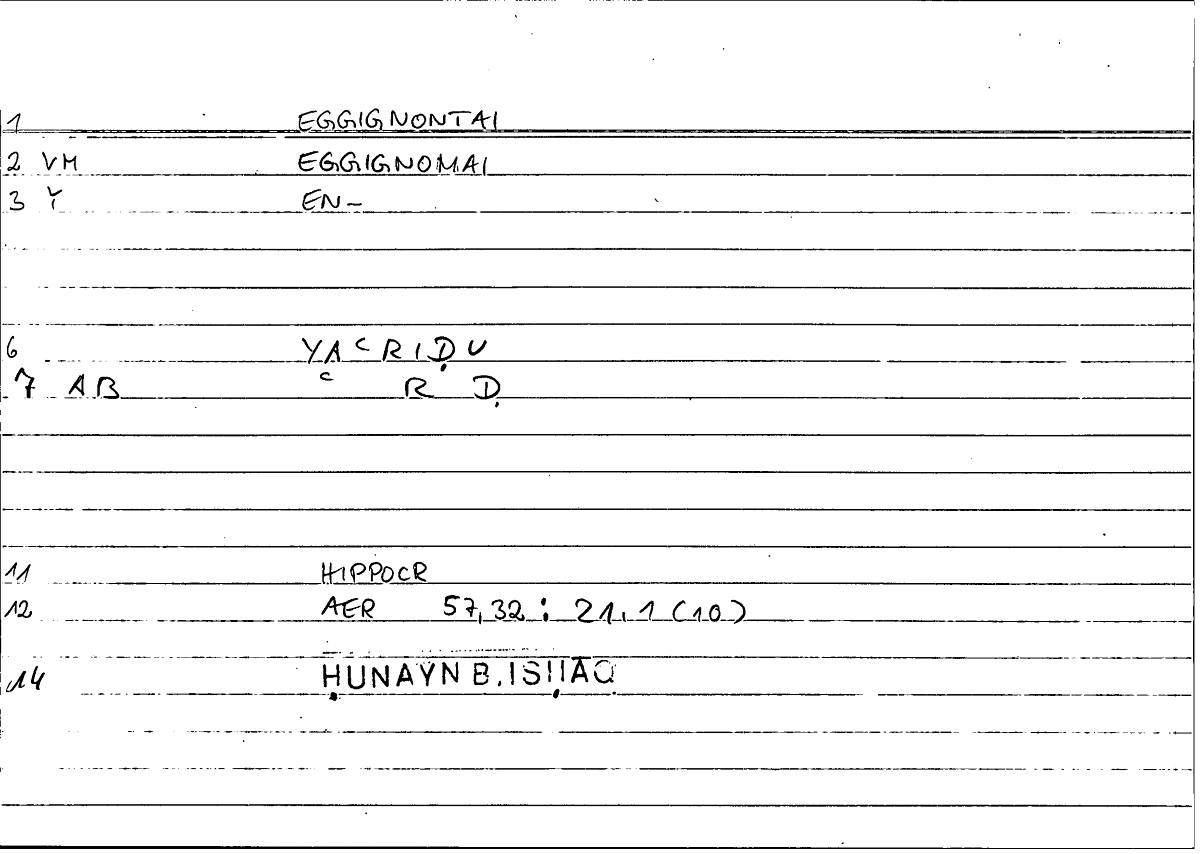 1 EGGIGNONTAI
2 VM EGGIGNOMAI
3 Y EN-
6 YAʿRIḌU
7 AB ʿ R Ḍ
11 HIPPOCR
12 AER 57,32 : 21.1 (10)
14 ḤUNAYN B. ISḤĀQ